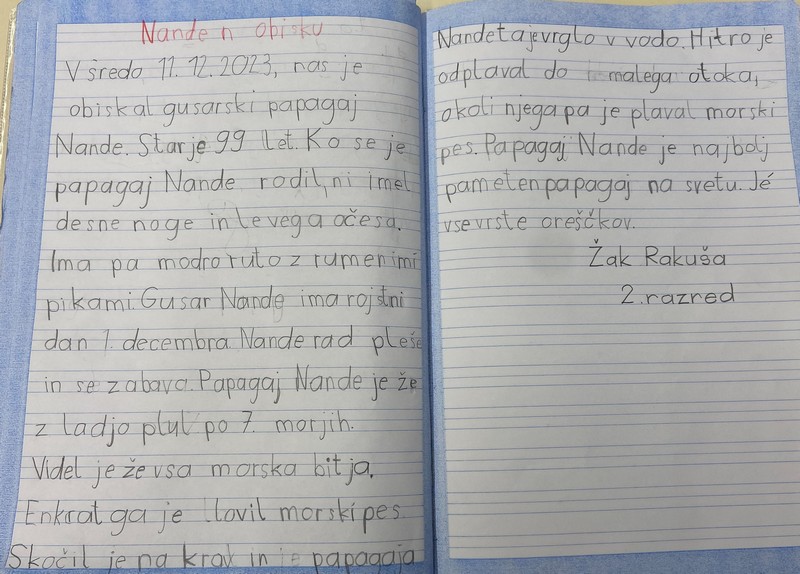 Nande n obisku
V sredo 11.12.2023, nas je
obiskal gusarski papagaj
Nande. Star je 99 let. Ko se je
papagaj Nande rodil, ni imel
desne noge in levega očesa.
Ima pa modro ruto z rumenimi
pikami. Gusar Nande ima rojstni
dan 1. decembra. Nande rad pleše
in se zabava. Papagaj Nande je že
z ladjo plul po 7. morjih.
Videl je že vsa morska bitja.
Enkrat ga je lovil morski pes.
Skočil je na krov in je papagaja
Nandeta je vrglo v vodo. Hitro je
odplaval do malega otoka,
okoli njega pa je plaval morski
pes. Papagaj Nande je najbolj
pameten papagaj na svetu. Jé
vse vrste oreščkov.
Žak Rakuša
2. razred